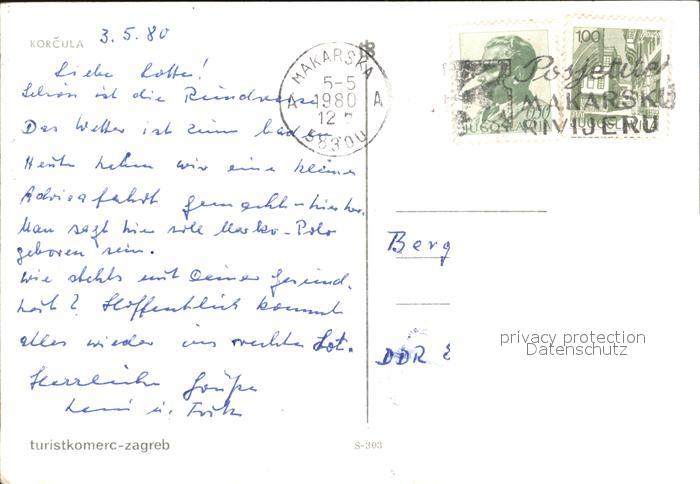 KORČULA 3.5.80
Liebe Lotte!
Schön ist die Rundreise
Das Wetter ist zum baden
Heute haben wir eine kleine
Adriafahrt gemacht - hierher.
Man sagt hier solle Marko-Polo
geboren sein.
Wie stehts mit Deiner Gesund.
heit? Hoffentlich kommt
alles wieder ins rechte Lot.
Herzliche Grüße
u. Fritz
turistkomerc-zagreb
S-303
MAKARSKA
5-5
1980
12
A A
58300
100
JUGOSLAVIJA
Posjetite
MAKARSKU
RIVIJERU
Berg
DDR
privacy protection
Datenschutz